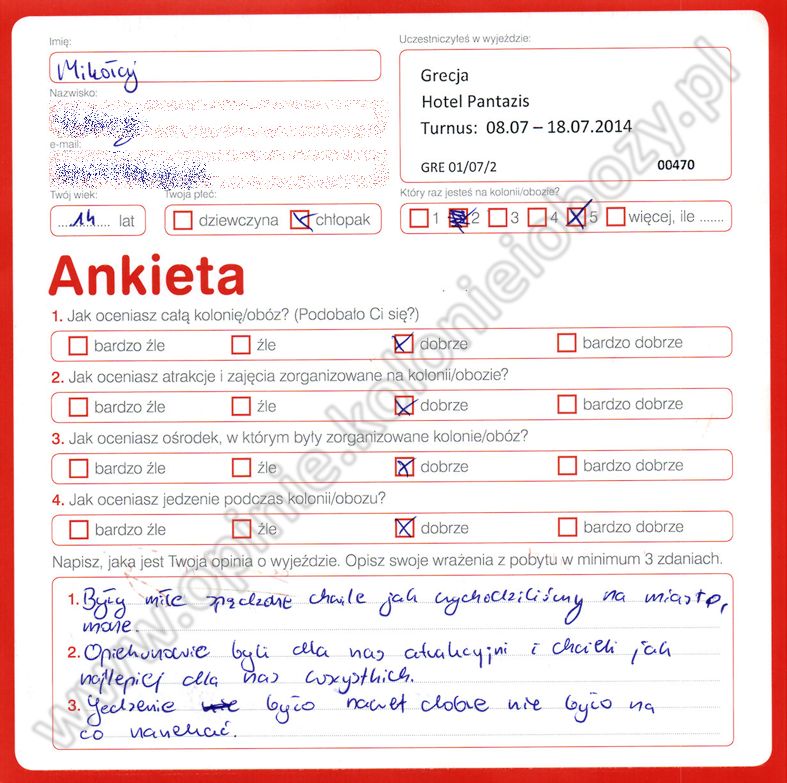 Imię:
Mikołaj
Uczestniczyłeś w wyjeździe:
Grecja
Hotel Pantazis
Turnus: 08.07 – 18.07.2014
GRE 01/07/2 00470
Nazwisko:
e-mail:
Twój wiek:
14 lat
Twoja płeć:
dziewczyna chłopak
Który raz jesteś na kolonii/obozie?
1 2 3 4 5 więcej, ile .......
Ankieta
1. Jak oceniasz całą kolonię/obóz? (Podobało Ci się?)
bardzo źle źle dobrze bardzo dobrze
2. Jak oceniasz atrakcje i zajęcia zorganizowane na kolonii/obozie?
bardzo źle źle dobrze bardzo dobrze
3. Jak oceniasz ośrodek, w którym były zorganizowane kolonie/obóz?
bardzo źle źle dobrze bardzo dobrze
4. Jak oceniasz jedzenie podczas kolonii/obozu?
bardzo źle źle dobrze bardzo dobrze
Napisz, jaka jest Twoja opinia o wyjeździe. Opisz swoje wrażenia z pobytu w minimum 3 zdaniach.
1. Były miłe spędzone chwile jak wychodziliśmy na miasto,
morze.
2. Opiekunowie byli dla nas atrakcyjni i chcieli jak
najlepiej dla nas wszystkich.
3. Jedzenie było nawet dobre nie było na
co narzekać.
www.opinie.kolonieiobozy.pl